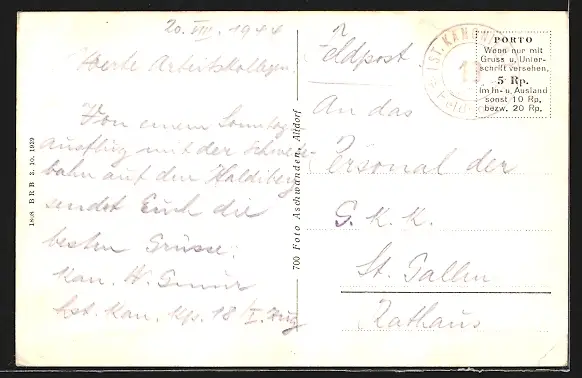 20. VIII. 1944
Werte Arbeitskollegen!
Von einem Sonntags
ausflug mit der Schwebe-
bahn auf den Haldiberg
sendet Euch die
besten Grüsse:
Kan. W.
Fest. Kan. Kp. 18 I. Zug
1808 BRB 3. 10. 1939
700 Foto Aschwanden, Altdorf
Feldpost.
An das
Personal der
G. K. K.
St. Gallen
Rathaus
PORTO
Wenn nur mit
Gruss u. Unter-
schrift versehen,
5 Rp.
im In- u. Ausland
sonst 10 Rp.
bezw. 20 Rp.